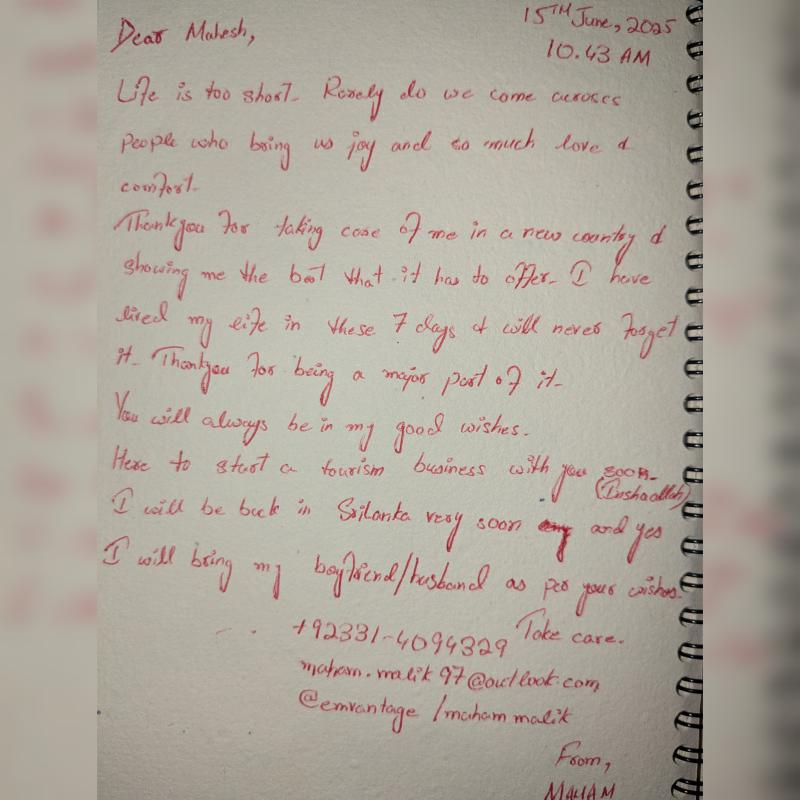 15TH June, 2025
10.43 AM
Dear Mahesh,
Life is too short. Rarely do we come across
people who bring us joy and so much love &
comfort.
Thankyou for taking care of me in a new country &
showing me the best that it has to offer. I have
lived my life in these 7 days & will never forget
it. Thankyou for being a major part of it.
You will always be in my good wishes.
Here to start a tourism business with you soon.
(Inshaallah)
I will be back in Srilanka very soon and yes
I will bring my boyfriend/husband as per your wishes.
Take care.
+92331-4094329
maham.malik97@outlook.com
@emvantage /maham malik
From,
MAHAM